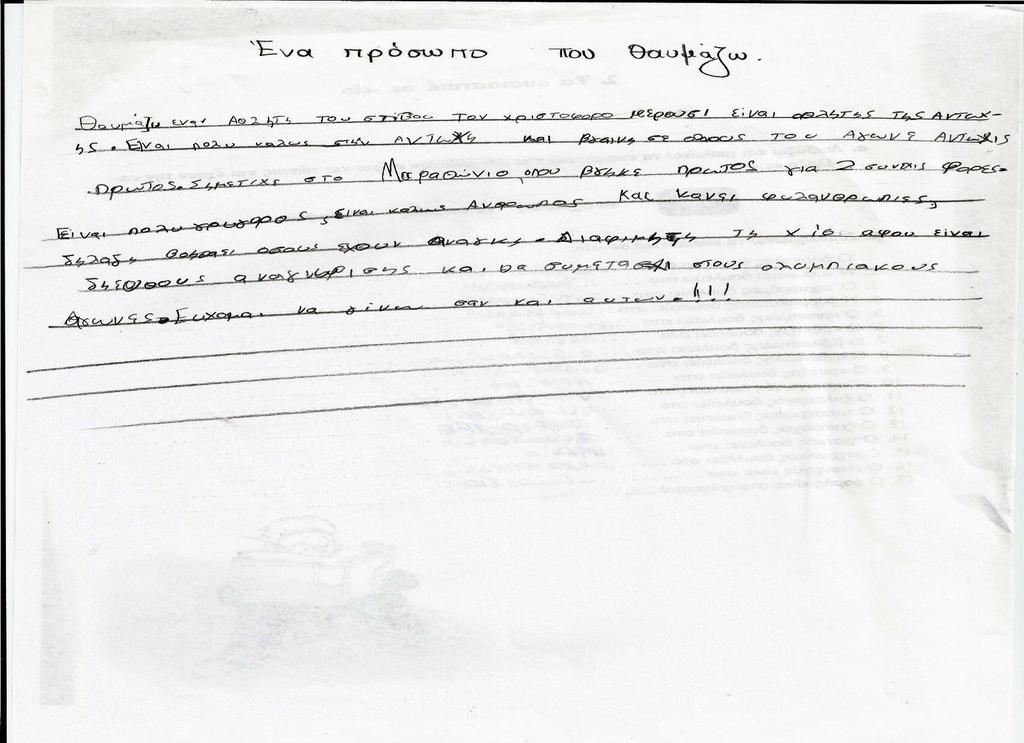 Ένα πρόσωπο που θαυμάζω.
Θαυμάζω εναν Αθλητη του στιβου τον χριστοφορο μερουσι είναι αθλητης της Αντωχ-
ης. Είναι πολυ καλως στην Αντωχη και βγαινη σε ολους του Αγωνε Αντωχις
πρωτος. Σημετιχε στο Μαραθώνιο, οπου βγηκε πρωτος για 2 συνχις φορες.
Είναι πολυ γρηγορος, είναι καλως Ανθρωπος και κανει φιλανθρωπιες,
δηλαδη βοηθαει οσους εχουν αναγκη. Διαφιμηζη τη χιο αφου είναι
διεθνους αναγνωρισης και θα συμετασχι στους ολυμπιακους
Αγωνες. Ευχομαι να γίνω σαν και αυτων.!!!